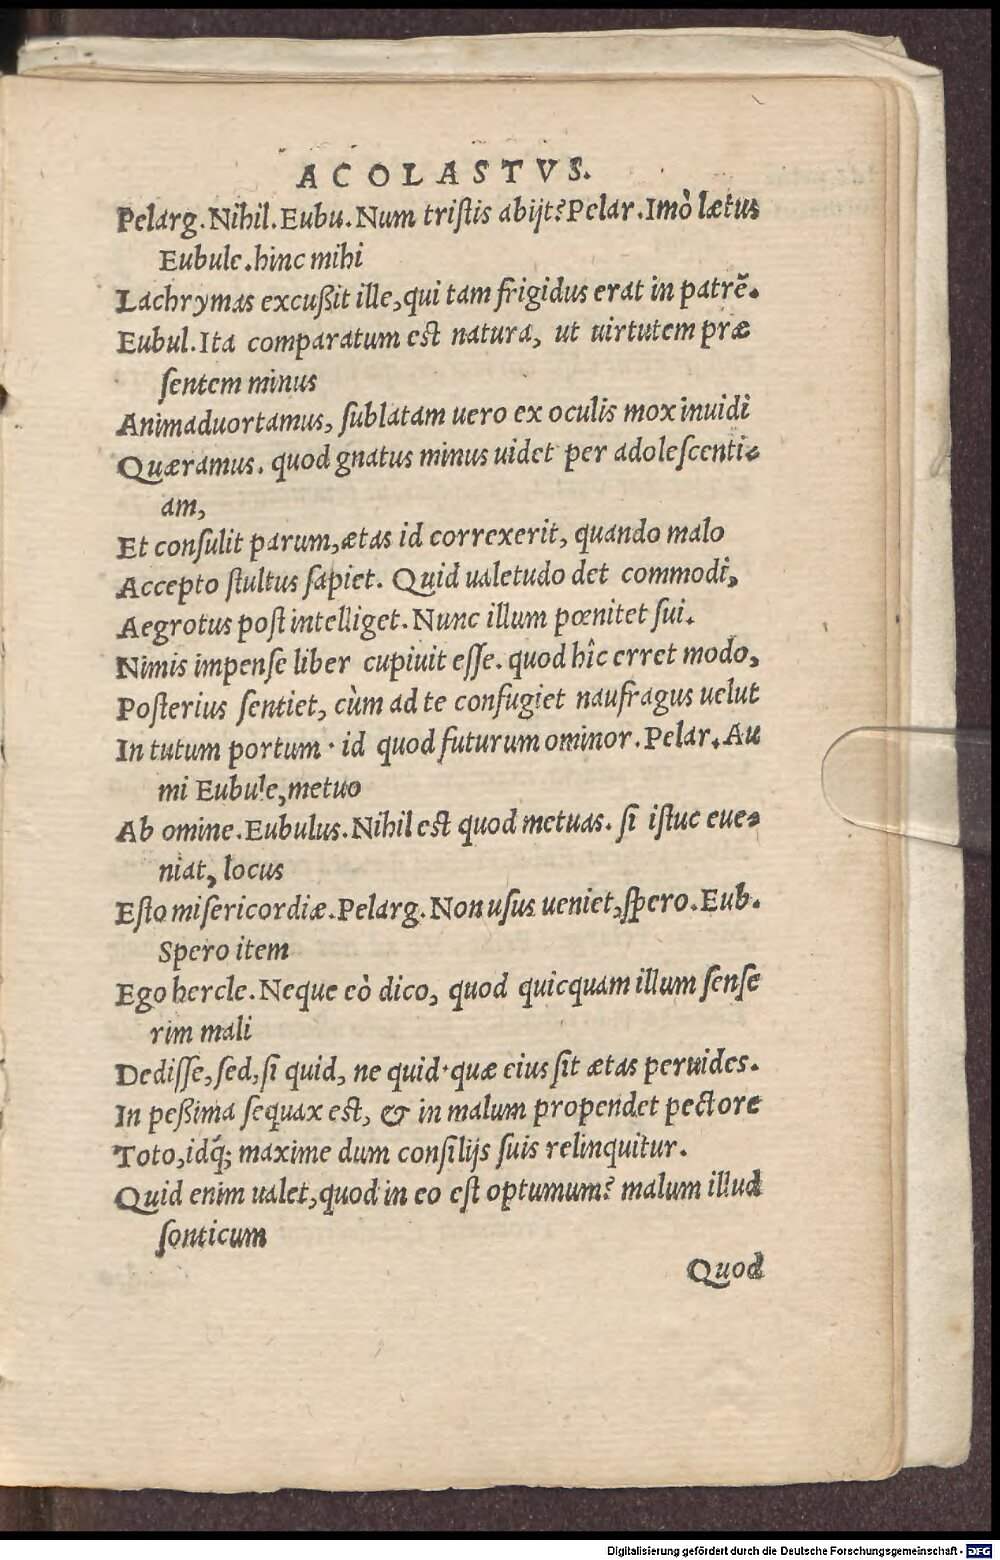 ACOLASTVS.
Pelarg. Nihil. Eubu. Num tristis abijt? Pelar. Imò lætus
Eubule. hinc mihi
Lachrymas excußit ille, qui tam frigidus erat in patrẽ.
Eubul. Ita comparatum est natura, ut uirtutem præ
sentem minus
Animaduortamus, sublatam uero ex oculis mox inuidi
Quæramus. quod gnatus minus uidet per adolescenti-
am,
Et consulit parum, ætas id correxerit, quando malo
Accepto stultus sapiet. Quid ualetudo det commodi,
Aegrotus post intelliget. Nunc illum pœnitet sui.
Nimis impense liber cupiuit esse. quod hîc erret modo,
Posterius sentiet, cùm ad te confugiet naufragus uelut
In tutum portum · id quod futurum ominor. Pelar. Au
mi Eubule, metuo
Ab omine. Eubulus. Nihil est quod metuas. si istuc eue-
niat, locus
Esto misericordiæ. Pelarg. Non usus ueniet, spero. Eub.
Spero item
Ego hercle. Neque eò dico, quod quicquam illum sense
rim mali
Dedisse, sed, si quid, ne quid · quæ eius sit ætas peruides.
In peßima sequax est, & in malum propendet pectore
Toto, idq́; maxime dum consilijs suis relinquitur.
Quid enim ualet, quod in eo est optumum? malum illud
sonticum
Quod
Digitalisierung gefördert durch die Deutsche Forschungsgemeinschaft - DFG